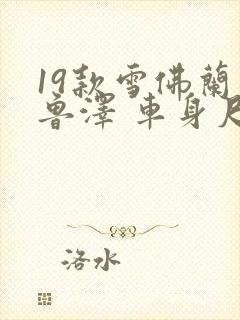 19款雪佛蘭
魯澤 車身尺
洛水